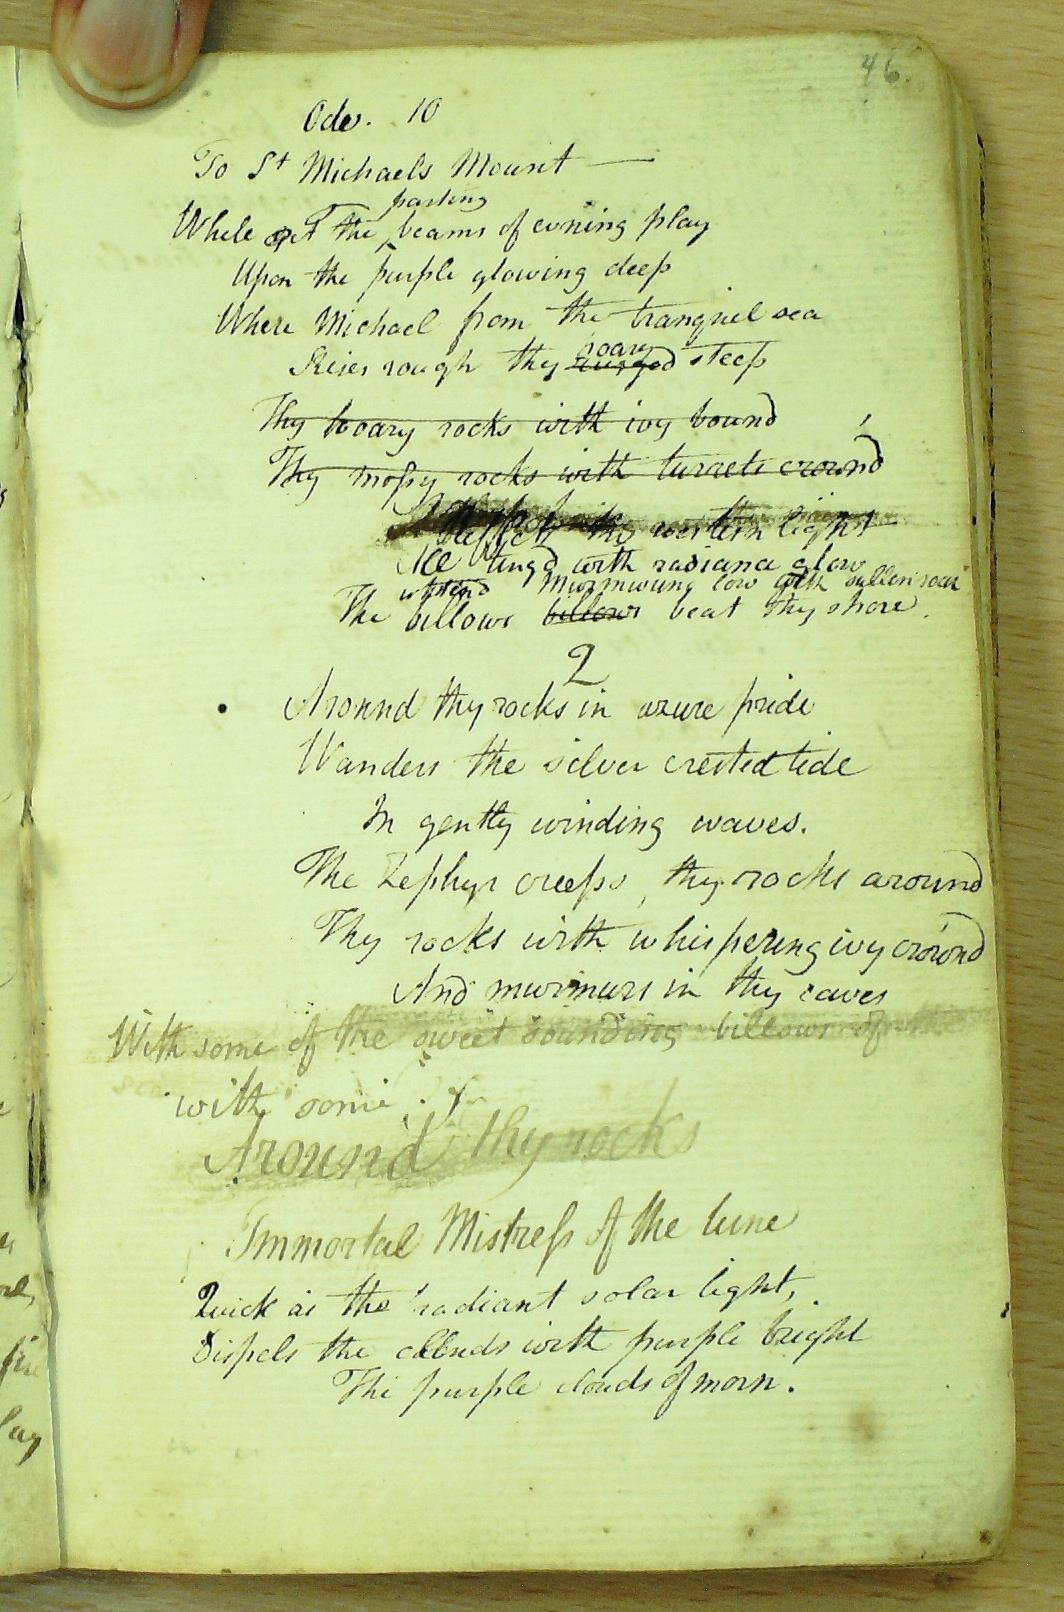 46.
Ode. 10
To St Michaels Mount —
parting
While yet The beams of evning play
Upon the purple glowing deep
Where Michael from the tranquil sea
hoary
Rises rough thy rugged steep
Thy hoary rocks with ivy bound
Thy mossy rocks with turrets crown'd
Reflects the western light
All ting'd with radiance glow
Murmuring low with sullen roar
The billows billows beat thy shore.
2
Around thy rocks in azure pride
Wanders the silver crested tide
In gently winding waves.
The Zephyr creeps, thy rocks around
Thy rocks with whispering ivy crownd
And murmurs in thy caves
With some of the sweet sounding billows of the
with some
Around thy rocks
Immortal Mistress of the lune
Quick as the radiant solar light,
Dispels the clouds with purple bright
The purple clouds of morn.